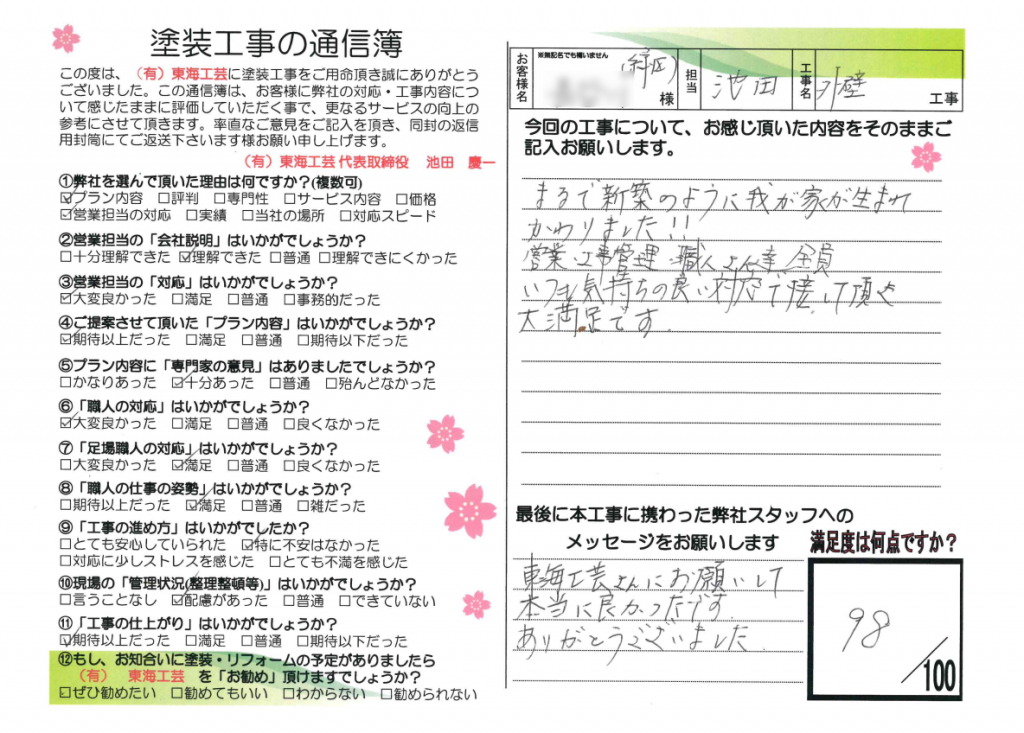 塗装工事の通信簿
この度は、（有）東海工芸に塗装工事をご用命頂き誠にありがとう
ございました。この通信簿は、お客様に弊社の対応・工事内容につ
いて感じたままに評価していただく事で、更なるサービスの向上の
参考にさせて頂きます。率直なご意見をご記入を頂き、同封の返信
用封筒にてご返送下さいます様お願い申し上げます。
（有）東海工芸 代表取締役 池田 慶一
①弊社を選んで頂いた理由は何ですか？(複数可)
☑プラン内容 □評判 □専門性 □サービス内容 □価格
☑営業担当の対応 □実績 □当社の場所 □対応スピード
②営業担当の「会社説明」はいかがでしょうか？
□十分理解できた ☑理解できた □普通 □理解できにくかった
③営業担当の「対応」はいかがでしょうか？
☑大変良かった □満足 □普通 □事務的だった
④ご提案させて頂いた「プラン内容」はいかがでしょうか？
☑期待以上だった □満足 □普通 □期待以下だった
⑤プラン内容に「専門家の意見」はありましたでしょうか？
□かなりあった ☑十分あった □普通 □殆んどなかった
⑥「職人の対応」はいかがでしょうか？
☑大変良かった □満足 □普通 □良くなかった
⑦「足場職人の対応」はいかがでしょうか？
□大変良かった ☑満足 □普通 □良くなかった
⑧「職人の仕事の姿勢」はいかがでしょうか？
□期待以上だった ☑満足 □普通 □雑だった
⑨「工事の進め方」はいかがでしたか？
□とても安心していられた ☑特に不安はなかった
□対応に少しストレスを感じた □とても不満を感じた
⑩現場の「管理状況(整理整頓等)」はいかがでしょうか？
□言うことなし ☑配慮があった □普通 □できていない
⑪「工事の仕上がり」はいかがでしょうか？
☑期待以上だった □満足 □普通 □期待以下だった
⑫もし、お知合いに塗装・リフォームの予定がありましたら
（有） 東海工芸 を「お勧め」頂けますでしょうか？
☑ぜひ勧めたい □勧めてもいい □わからない □勧められない
お客様名 ※無記名でも構いません (緑区) 様 担当 池田 工事名 外壁 工事
今回の工事について、お感じ頂いた内容をそのままご
記入お願いします。
まるで新築のように我が家が生まれ
かわりました!!
営業・工事管理・職人さん達全員
いつも気持ちの良い対応で接して頂き
大満足です.
最後に本工事に携わった弊社スタッフへの
メッセージをお願いします
東海工芸さんにお願いして
本当に良かったです.
ありがとうございました.
満足度は何点ですか？
98/100